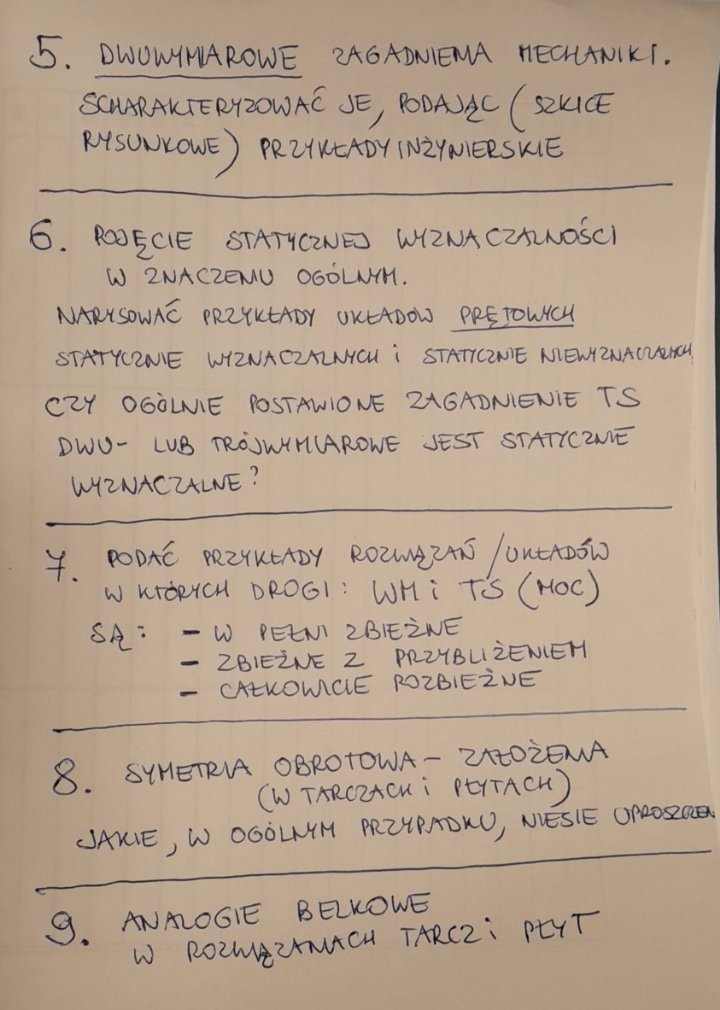 5. DWUWYMIAROWE ZAGADNIENIA MECHANIKI.
SCHARAKTERYZOWAĆ JE, PODAJĄC (SZKICE
RYSUNKOWE) PRZYKŁADY INŻYNIERSKIE
6. POJĘCIE STATYCZNEJ WYZNACZALNOŚCI
W ZNACZENIU OGÓLNYM.
NARYSOWAĆ PRZYKŁADY UKŁADÓW PRĘTOWYCH
STATYCZNIE WYZNACZALNYCH i STATYCZNIE NIEWYZNACZALNYCH
CZY OGÓLNIE POSTAWIONE ZAGADNIENIE TS
DWU- LUB TRÓJWYMIAROWE JEST STATYCZNIE
WYZNACZALNE?
7. PODAĆ PRZYKŁADY ROZWIĄZAŃ /UKŁADÓW
W KTÓRYCH DROGI: WM i TS (MOC)
SĄ: - W PEŁNI ZBIEŻNE
- ZBIEŻNE Z PRZYBLIŻENIEM
- CAŁKOWICIE ROZBIEŻNE
8. SYMETRIA OBROTOWA - ZAŁOŻENIA
(W TARCZACH i PŁYTACH)
JAKIE, W OGÓLNYM PRZYPADKU, NIESIE UPROSZCZEN
9. ANALOGIE BELKOWE
W ROZWIĄZANIACH TARCZ i PŁYT